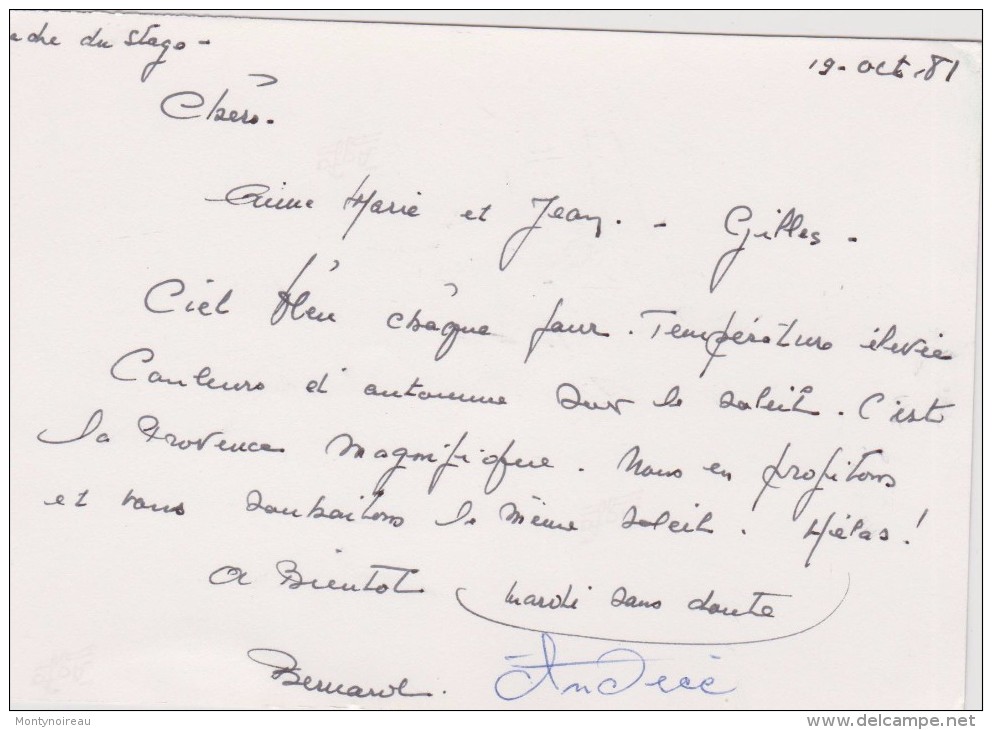 du stage -
19 - oct. 81
Chers.
Anne Marie et Jean. - Gilles -
Ciel bleu chaque jour. Température élevée
Couleurs d'automne sur le soleil. C'est
la Provence magnifique. Nous en profitons
et vous souhaitons le même soleil. Hélas!
A Bientot (mardi sans doute)
Bernard. Andrée
Montynoireau
delcampe.net